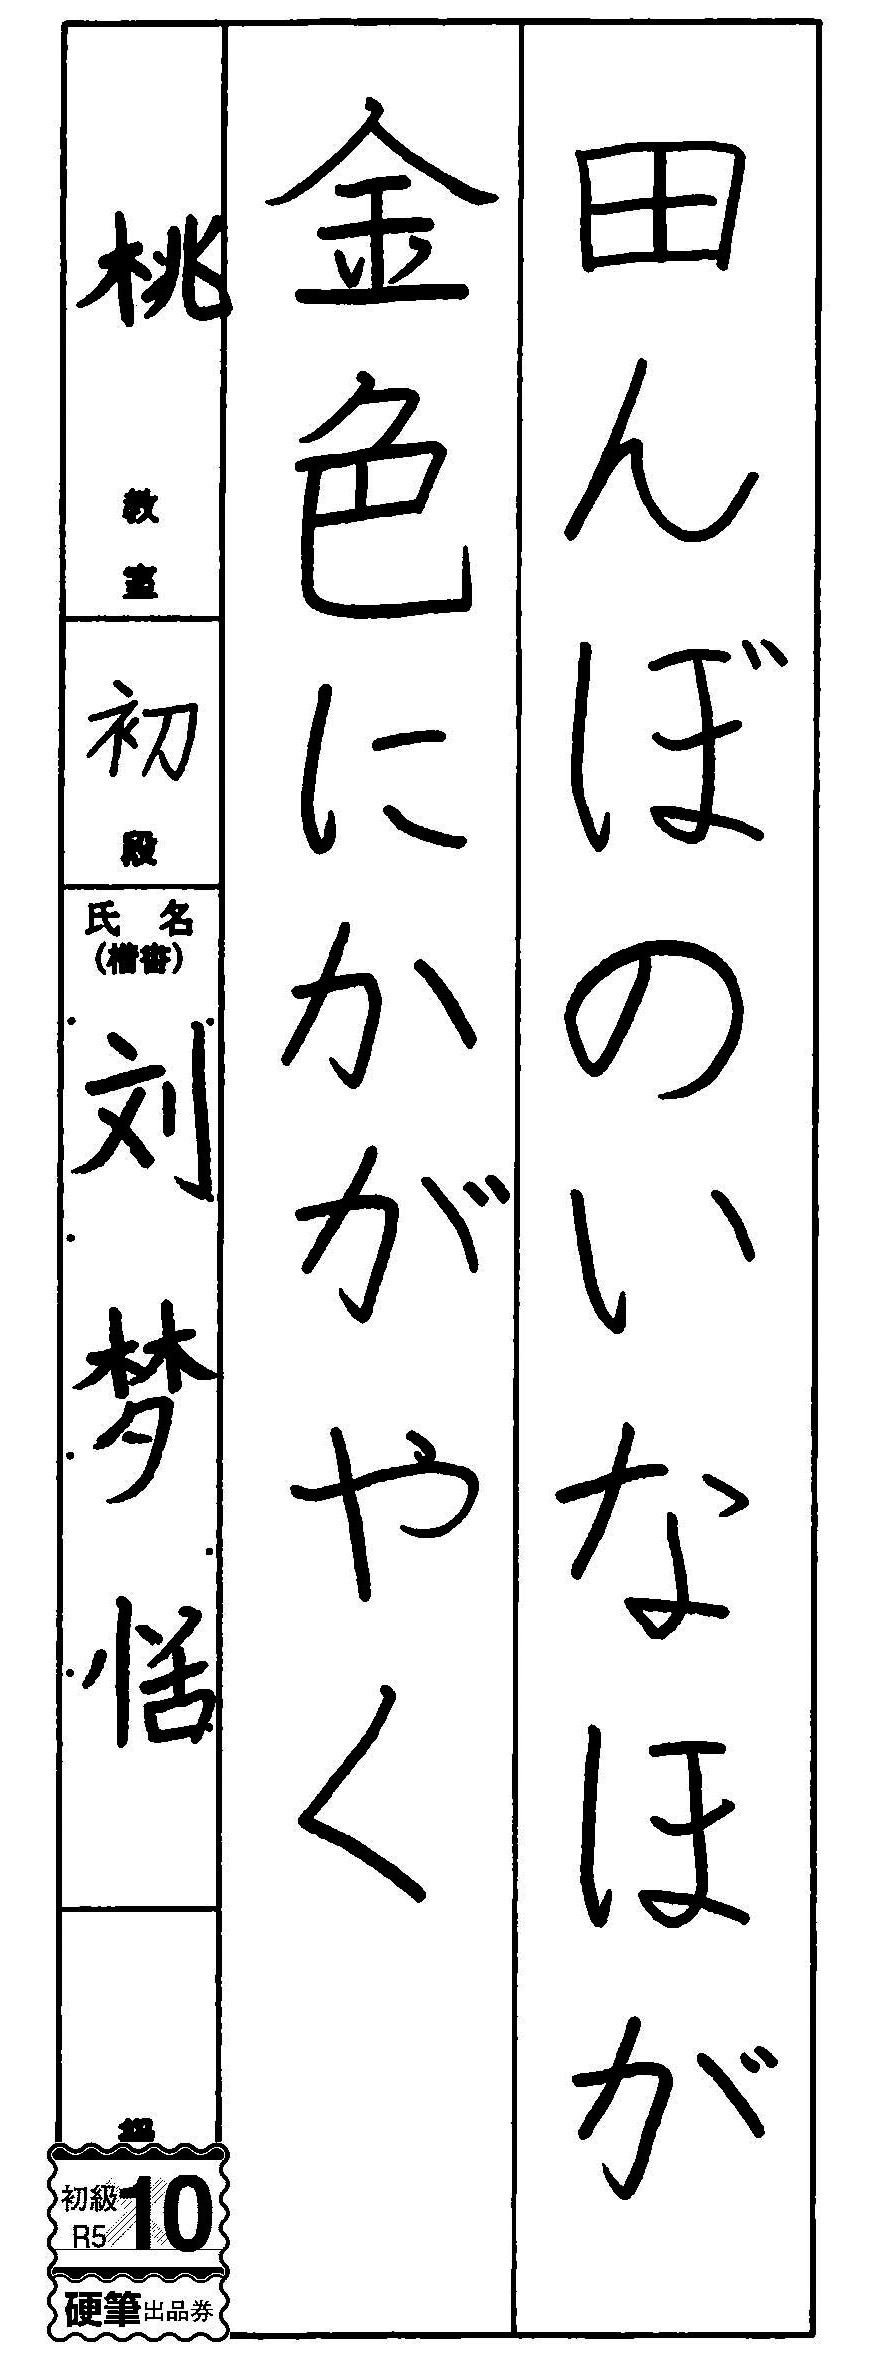 田んぼのいなほが
金色にかがやく
桃
教室
初
段
氏名
(楷書)
刘梦恬
初級
R5
10
硬筆出品券